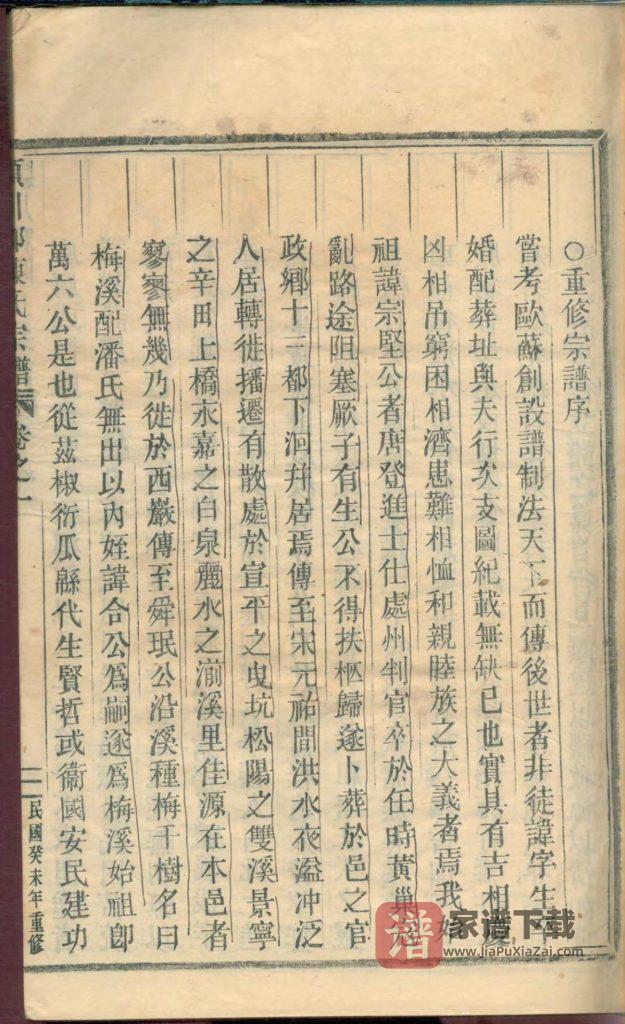 ○重修宗譜序
嘗考歐蘇創設譜制法天下而傳後世者非徒諱字生
婚配葬址與夫行次支圖紀載無缺已也實具有吉相慶
凶相吊窮困相濟患難相恤和親睦族之大義者焉我始
祖諱宗堅公者唐登進士仕處州判官卒於任時黃巢冦
亂路途阻塞厥子有生公不得扶柩歸遂卜葬於邑之官
政鄉十三都下洄井居焉傳至宋元祐間洪水夜溢冲泛
人居轉徙播遷有散處於宣平之曳坑松陽之雙溪景寧
之辛田上橋永嘉之白泉麗水之湔溪里佳源在本邑者
寥寥無幾乃徙於西巖傳至舜珉公沿溪種梅千樹名曰
梅溪配潘氏無出以內姪諱合公爲嗣遂爲梅溪始祖卽
萬六公是也從茲椒衍瓜緜代生賢哲或衞國安民建功
川郡陳氏宗譜 卷之一
民國癸未年重修
譜 家谱下载
www.JiaPuXiaZai.com